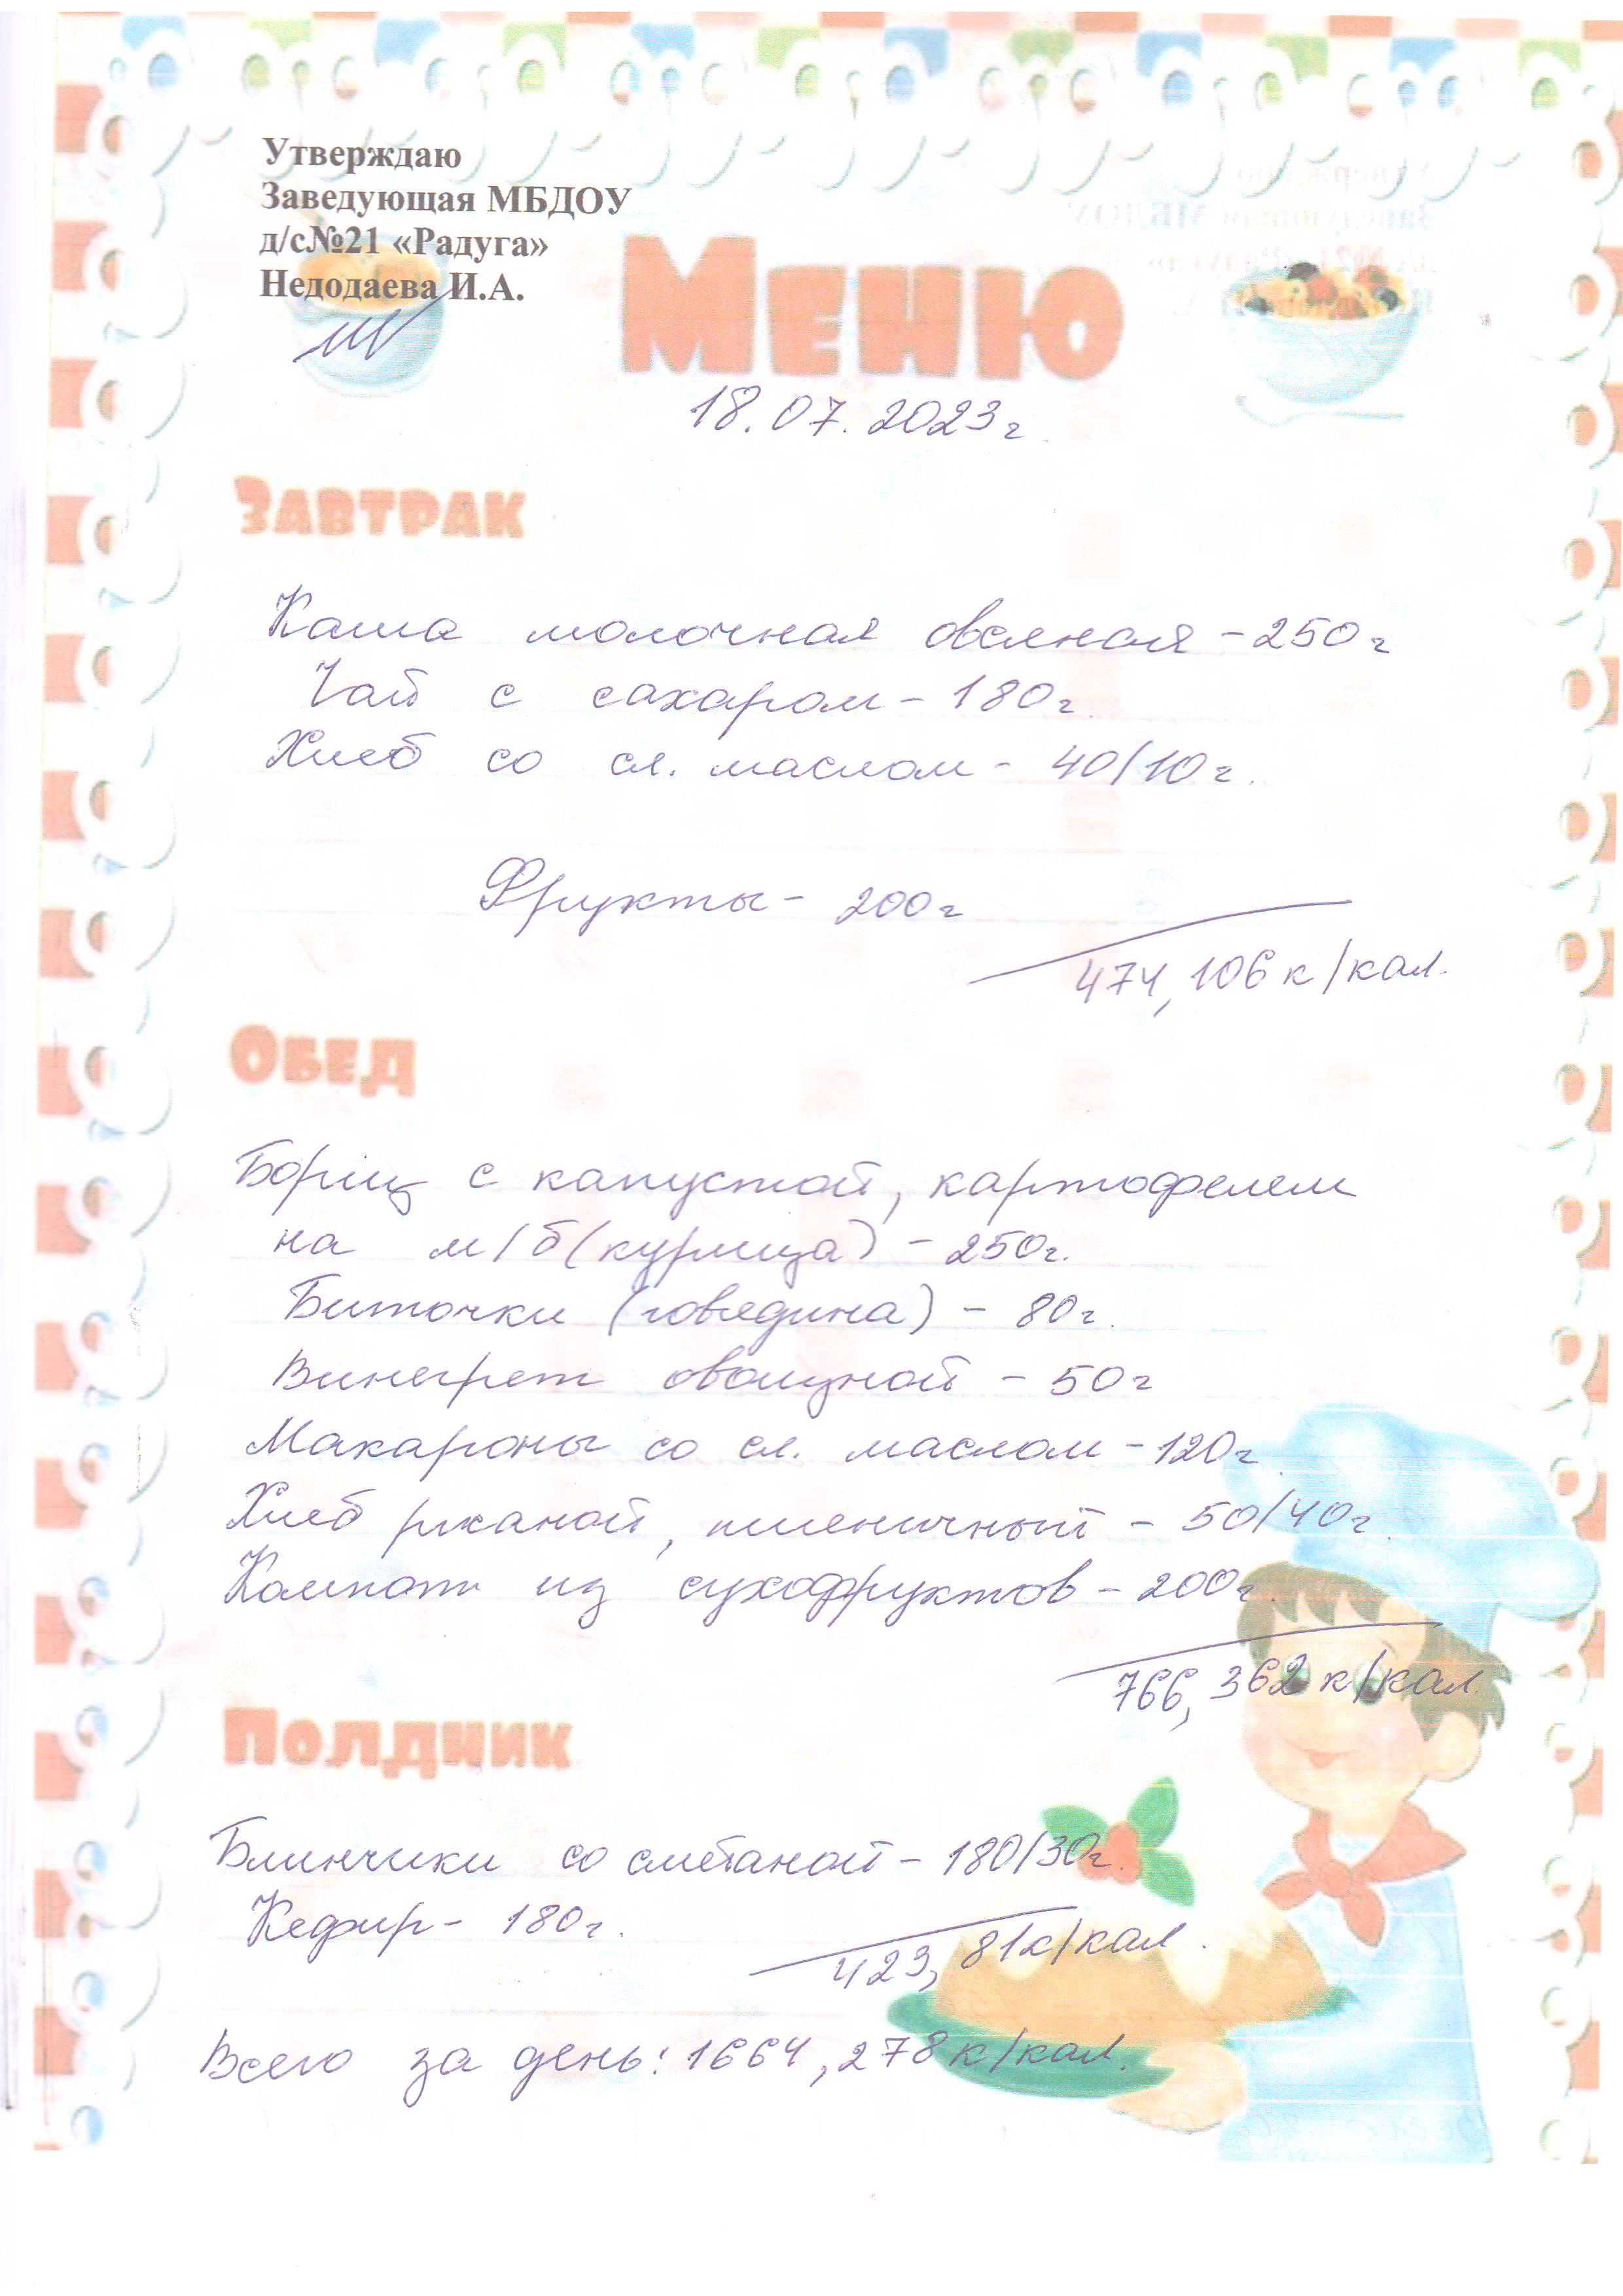 Утверждаю
Заведующая МБДОУ
д/с№21 «Радуга»
Недодаева И.А.
Меню
18.07.2023г.
Завтрак
Каша молочная овсяная - 250г
Чай с сахаром - 180г.
Хлеб со сл. маслом - 40/10г.
Фрукты - 200г
474,106 к/кал.
Обед
Борщ с капустой, картофелем
на м/б (курица) - 250г.
Биточки (говядина) - 80г.
Винегрет овощной - 50г
Макароны со сл. маслом - 120г.
Хлеб ржаной, пшеничный - 50/40г.
Компот из сухофруктов - 200г.
766,362 к/кал.
Полдник
Блинчики со сметаной - 180/30г.
Кефир - 180г.
423,81к/кал.
Всего за день: 1664,278 к/кал.